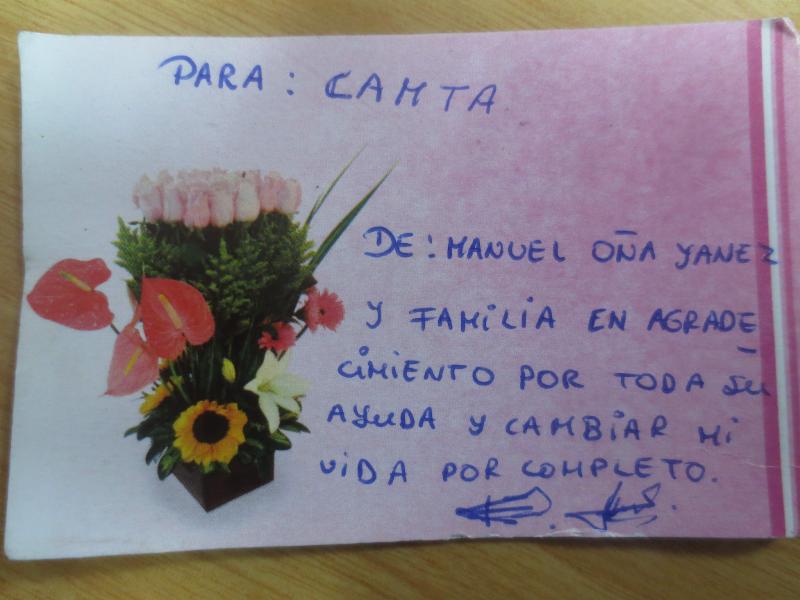 PARA: CAMTA
DE: MANUEL OÑA YANEZ
Y FAMILIA EN AGRADE-
CIMIENTO POR TODA SU
AYUDA Y CAMBIAR MI
VIDA POR COMPLETO.